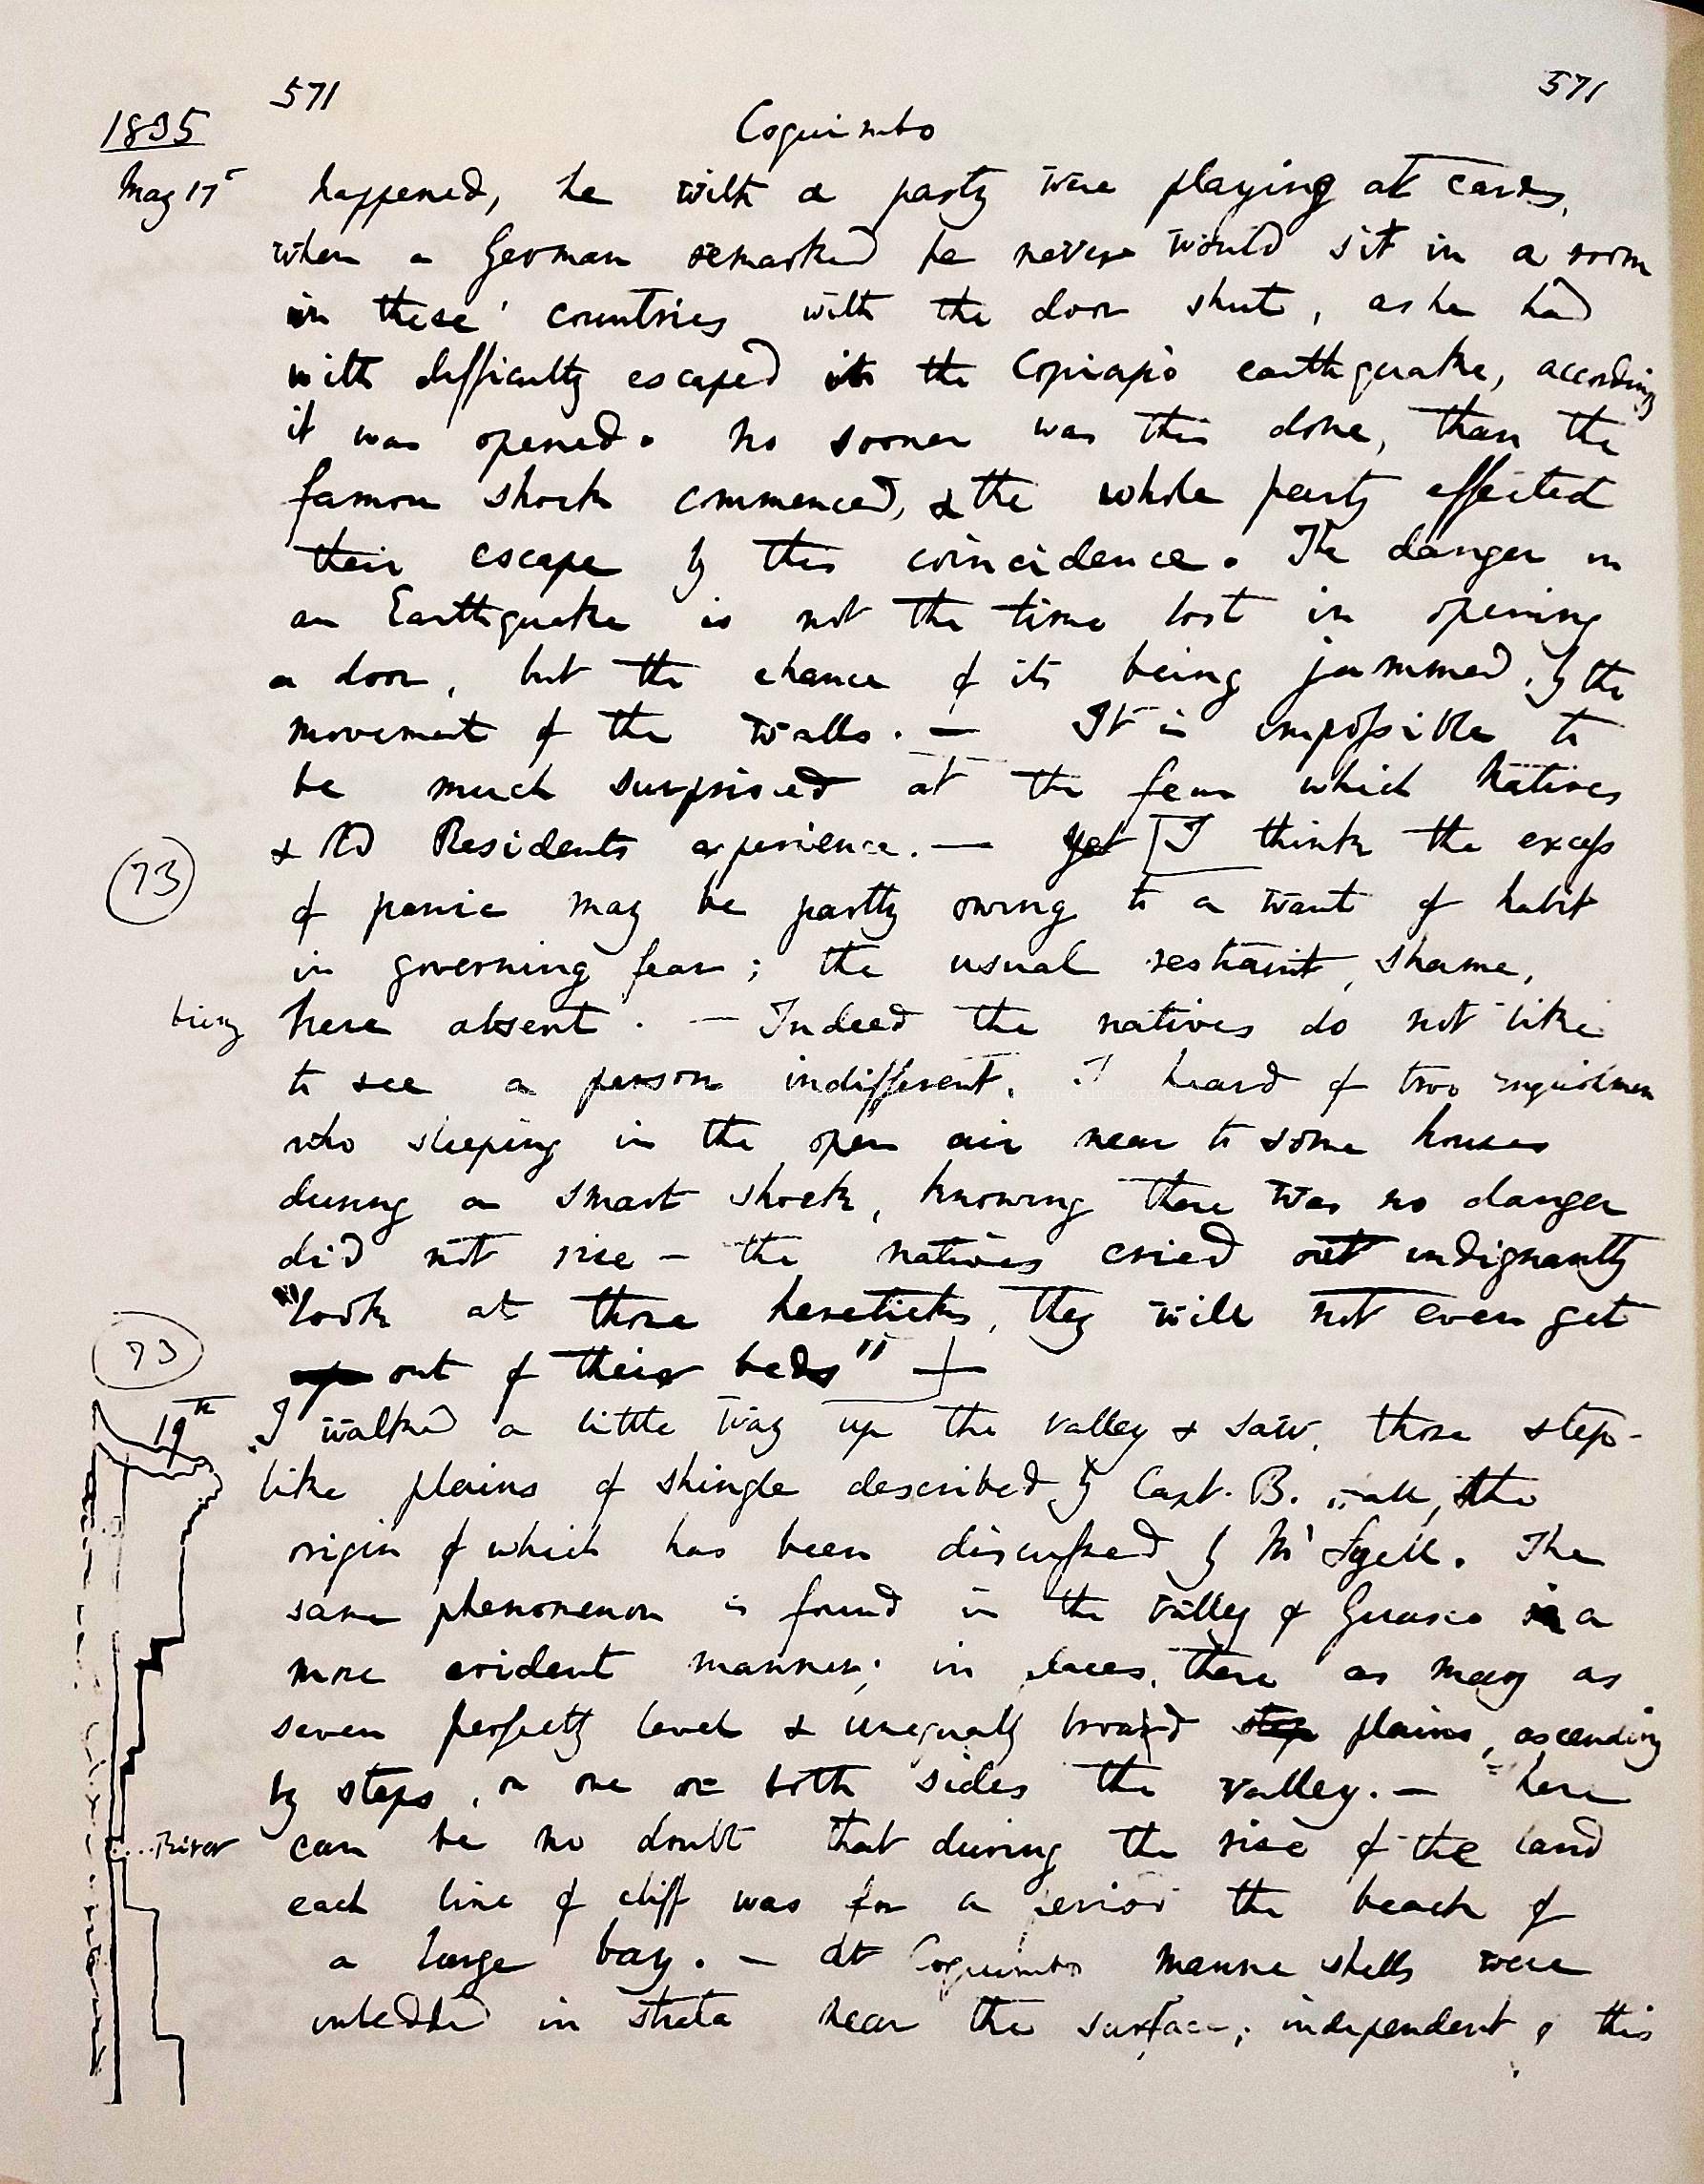 571
571
1835
Coquimbo
May 17th happened, he with a party were playing at cards,
when a German remarked he never would sit in a room
in these countries with the door shut, as he had
with difficulty escaped in the Copiapò earthquake, according
it was opened. No sooner was this done, than the
famous shock commenced, & the whole party effected
their escape by this coincidence. The danger in
an Earthquake is not the time lost in opening
a door, but the chance of its being jammed by the
movement of the walls. — It is impossible to
be much surprised at the fear which Natives
& old Residents experience. — yet [I think the excess
(73)
of panic may be partly owing to a want of habit
in governing fear; the usual restraint, shame,
being here absent. — Indeed the natives do not like
to see a person indifferent. I heard of two Englishmen
who sleeping in the open air near to some houses
during a smart shock, knowing there was no danger
did not rise — the natives cried out indignantly
"look at those hereticks, they will not even get
up out of their beds"
(73)
19th I walked a little way up the valley & saw those step-
like plains of shingle described by Capt. B. Hall, the
origin of which has been discussed by Mr Lyell. The
same phenomenon is found in the valley of Guasco in a
more evident manner; in places, there as many as
seven perfectly level & unequally broard step plains, ascending
by steps, on one or both sides the valley. — here
River can be no doubt that during the rise of the land
each line of cliff was for a period the beach of
a large bay. — At Coquimbo marine shells were
imbedded in strata near the surface; independent of this